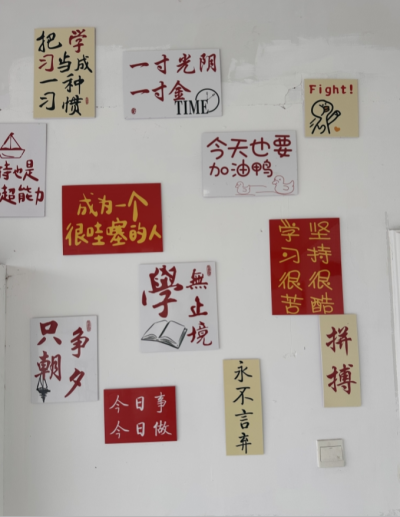 把学
习当成
一种
习惯
一寸光阴
一寸金
TIME
Fight!
待也是
超能力
今天也要
加油鸭
成为一个
很哇塞的人
学习很苦
坚持很酷
學
無止境
只争
朝夕
拼搏
永不言弃
今日事
今日做